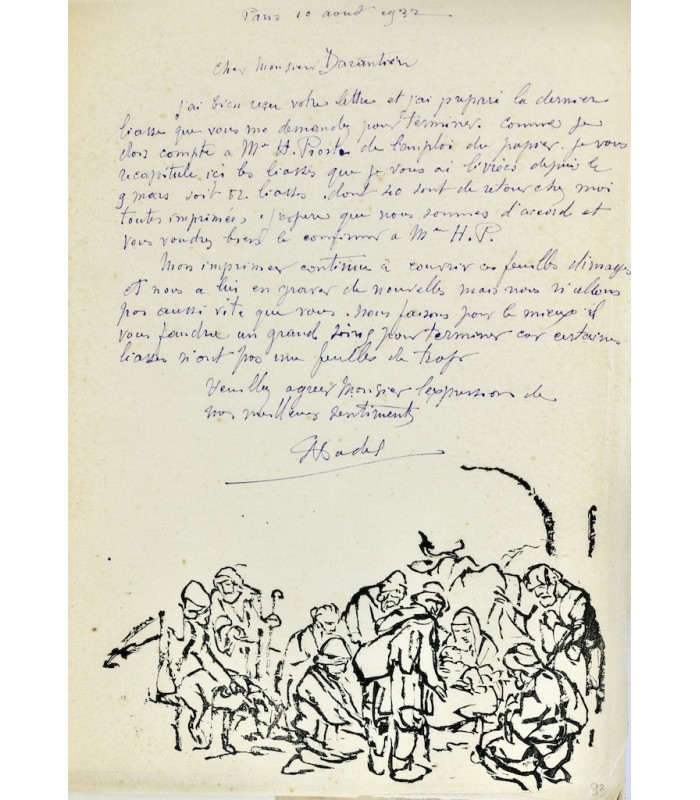 Paris 10 aout 1932
Cher Monsieur Darantiere
J'ai bien reçu votre lettre et j'ai preparé la derniere
liasse que vous me demandez pour terminer. Comme je
dois compte a Mr H. Proste de l'emploi du papier. je vous
recapitule ici les liasses que je vous ai livrées depuis le
9 mars soit 52 liasses. dont 40 sont de retour chez moi
toutes imprimées. j'espere que nous sommes d'accord et
vous voudrez bien le confirmer a Mr H.P.
Mon imprimeur continue à couvrir ces feuilles d'images
et nous a lui en graver de nouvelles mais nous n'allons
pas aussi vite que vous. Nous faisons pour le mieux il
vous faudra un grand soing pour terminer car certaines
liasses n'ont pas une feuilles de trop
Veuillez agreer Monsieur l'expression de
nos meilleurs sentiments
93